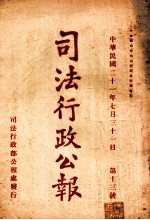 中華民國二十一年七月三十一日　第十三號
司法行政公報
司法行政部公報處發行